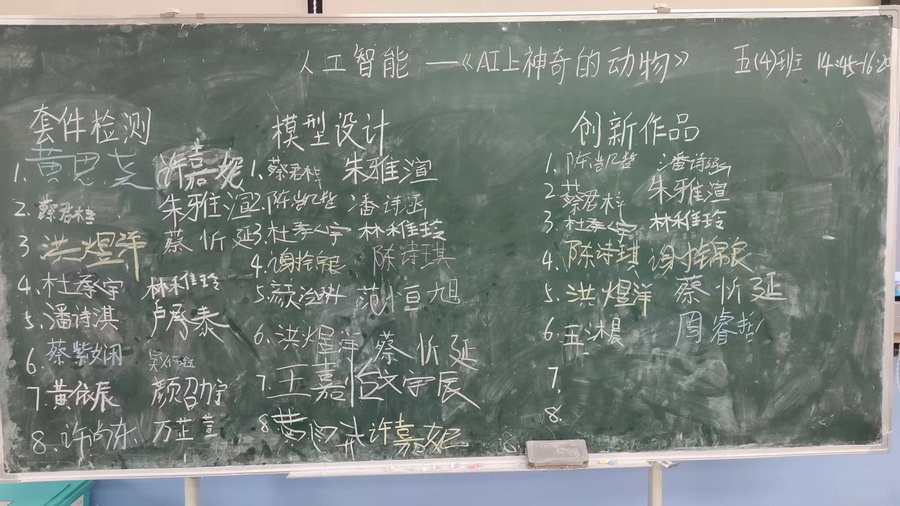 人工智能 —《AI上神奇的动物》 五(4)班 14:45-16:20
套件检测
1. 黄思 许嘉妮
2. 蔡君梓 朱雅渲
3 洪煜洋 蔡忻延
4. 杜孝宇 林稚玲
5. 潘诗淇 卢彦泰
6. 蔡紫娴
7 黄依辰 颜召宇
8. 许尚东 万芷萱
模型设计
1. 蔡君梓 朱雅渲
2. 潘诗涵
3. 杜孝宇 林稚玲
4. 陈诗琪
5. 颜 范恒旭
6. 洪煜洋 蔡忻延
7. 王嘉怡 文宇辰
8 黄 许嘉妮
创新作品
1. 潘诗涵
2. 蔡君梓 朱雅渲
3. 杜孝宇 林稚玲
4. 陈诗琪
5. 洪煜洋 蔡忻延
6. 王 周睿哲
7.
8.